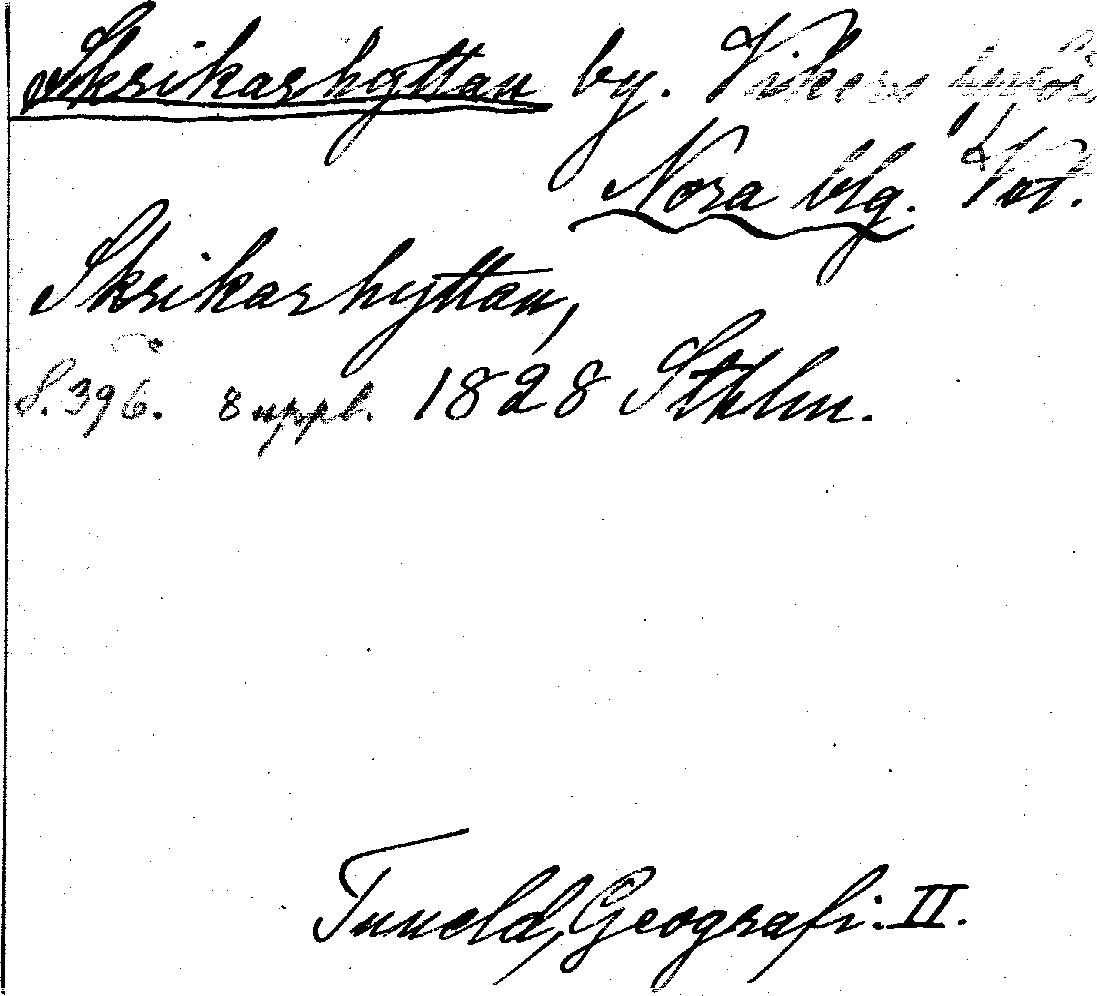 Skrikarhyttan by. Vikers
Nora blg. Vstm.
Skrikarhyttan,
S. 396. 8 uppl. 1828 Sthlm.
Tuneld, Geografi. II.